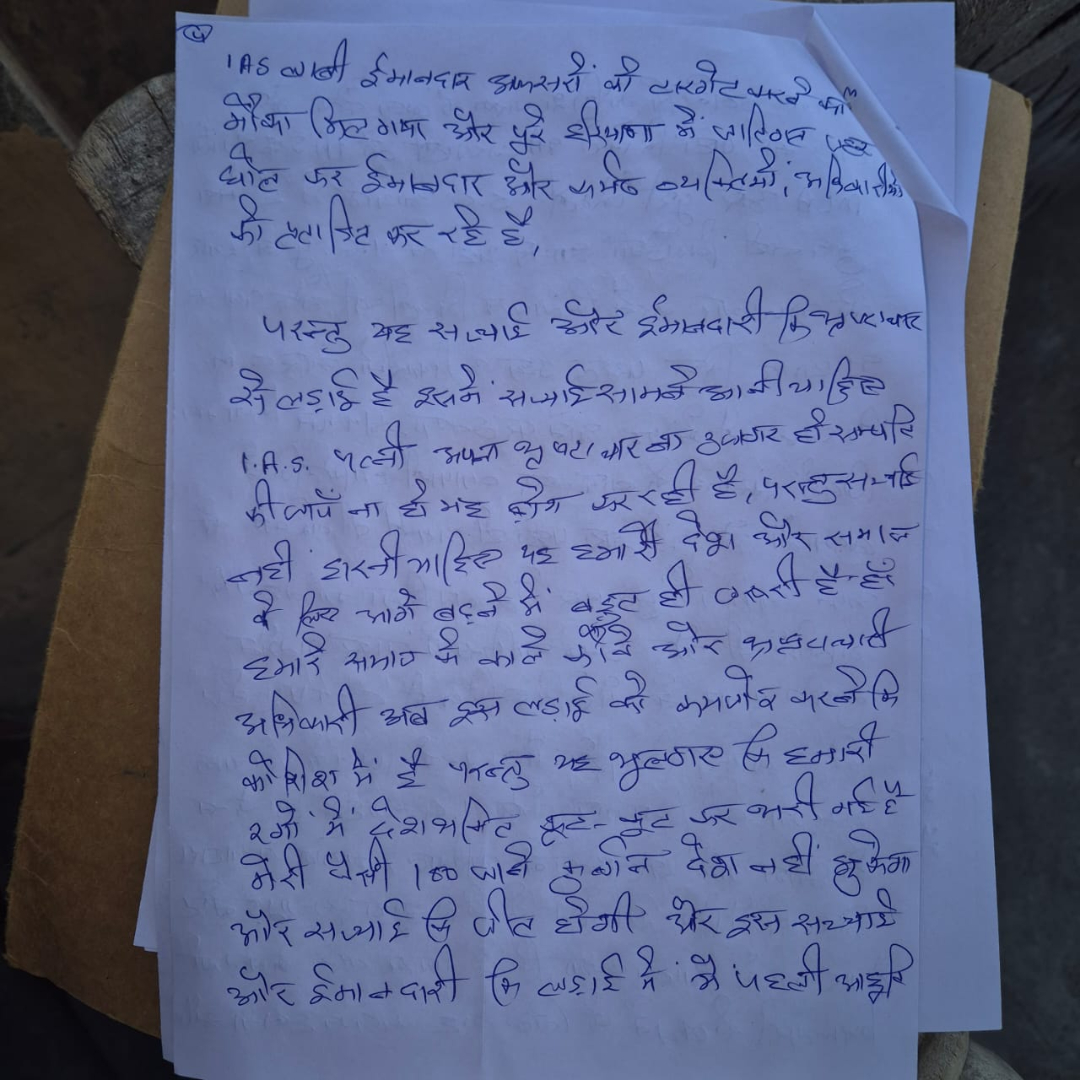 4
IAS लाबी ईमानदार अफसरों को टारगेट करने का
मौका मिल गया और पुरे हरियाणा में जातिगत जहर
घोल कर ईमानदार और कर्मठ व्यक्तियों, अधिकारीयों
को प्रताड़ित कर रहे है,
परन्तु यह सच्चाई और ईमानदारी कि भ्रष्टाचार
से लड़ाई है इसमें सच्चाई सामने आनी चाहिए
I.A.S. पत्नी अपना भ्रष्टाचार ना उजागर हो सम्पति
की जाँच ना हो यह ढोंग कर रही है, परन्तु सच्चाई
नही हारनी चाहिए यह हमारे देश और समाज
के लिए आगे बढ़ने में बहुत ही जरूरी है हाँ
हमारे समाज में काले और भ्रष्टाचारी
अधिकारी अब इस लड़ाई को कमजोर करने कि
कोशिश में है परन्तु यह भुलगए कि हमारी
रगो में देशभक्ति कूट-कूट कर भरी गई है
मेरी जैसी 100 जाने कुर्बान देश नहीं झुकेगा
और सच्चाई कि जीत होगी और इस सच्चाई
और ईमानदारी कि लड़ाई में मै पहली आहूति